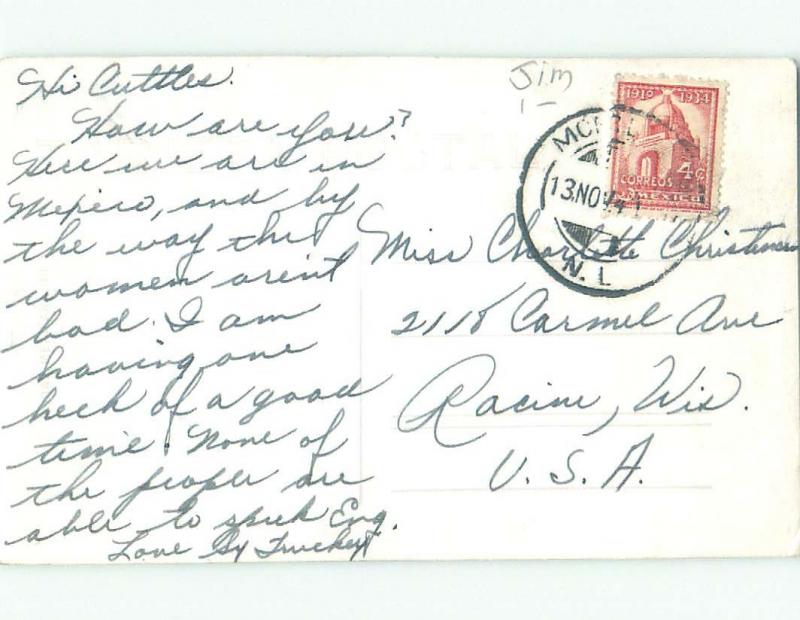 Hi Cuttles.
How are you?
Here we are in
Mexico, and by
the way the
women aren't
bad. I am
having one
heck of a good
time. None of
the people are
able to speek Eng.
Love
Jim
1-
1910 1934
4¢
CORREOS
MEXICO
13 NOV 41
N. L.
Miss Charlotte Christensen
2118 Carmel Ave
Racine, Wis.
U. S. A.